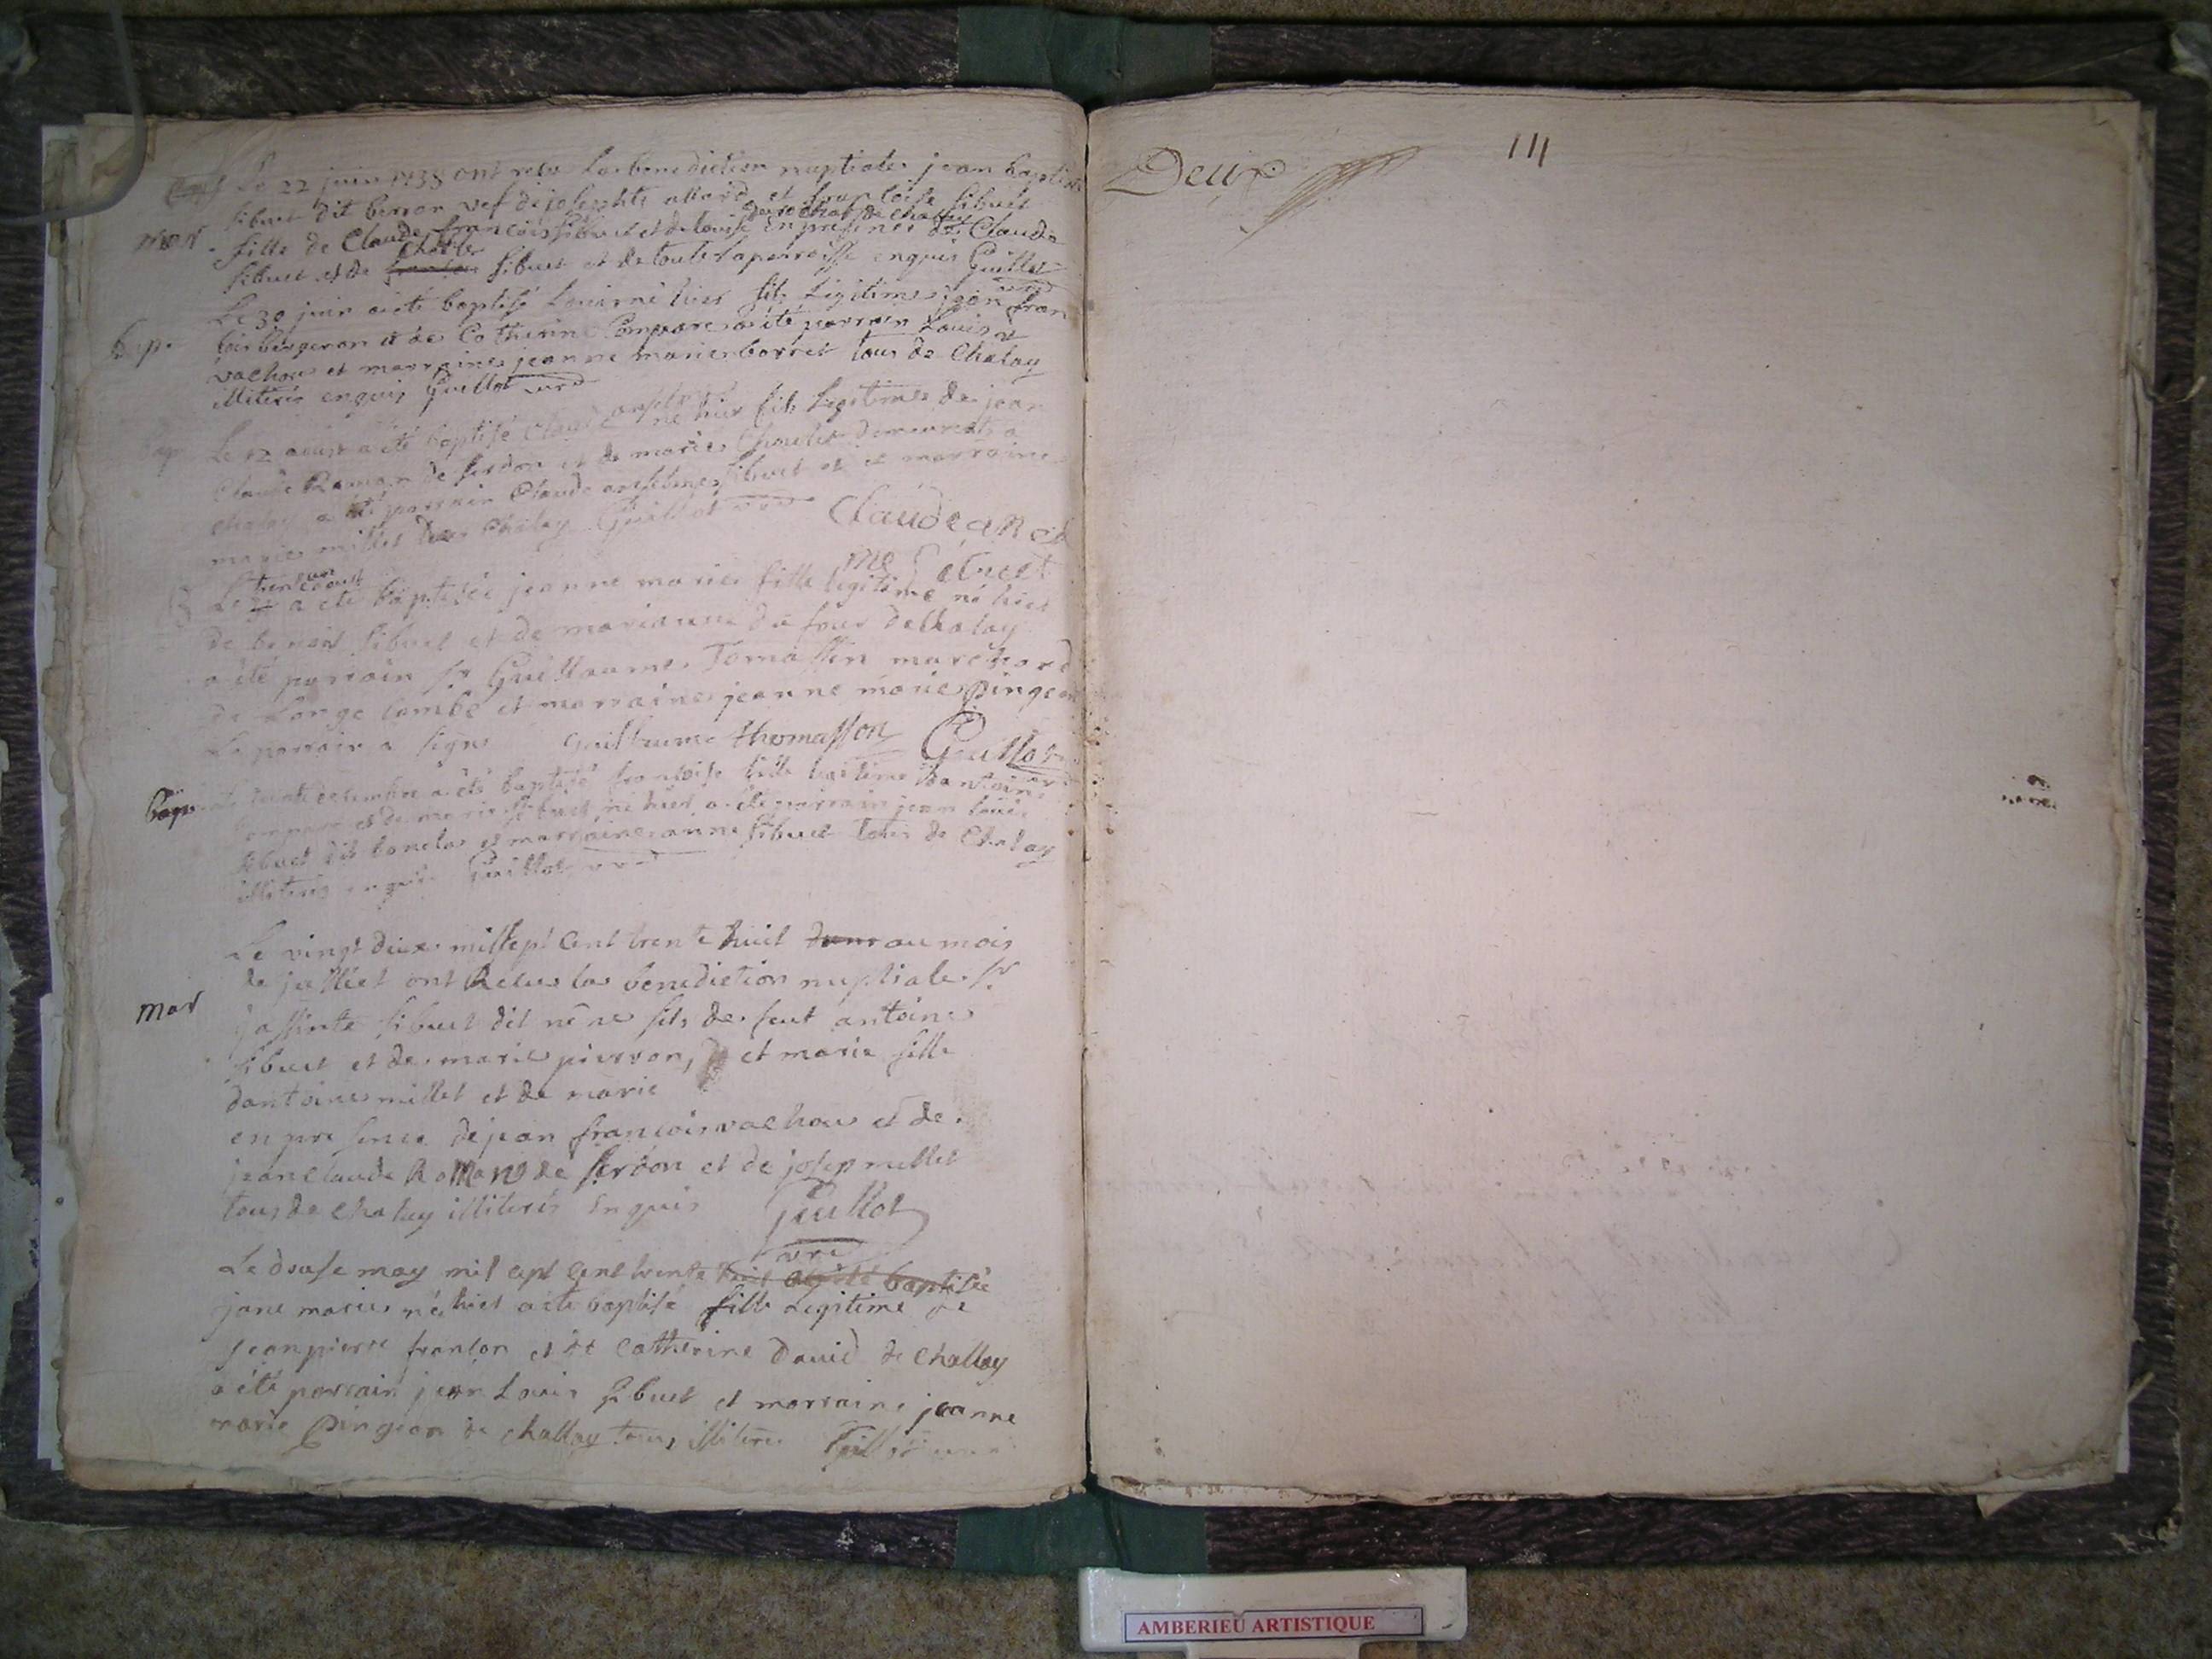 Le 22 juin 1738 ont recu la benediction nuptiale jean baptiste
sibuet dit berron vef de josephte allard et francoise sibuet
mar fille de Claude francois sibuet et de louise en presence de Claude
sibuet et de Charle sibuet et de toute la parroisse enquis Guillot
Le 30 juin a été baptisé Louis né hier fils legitime jean fran
bap. cois bergeron et de Catherine Compare a été parrain Louis
vachou et marraine jeanne marie borret tous de Chalay
illiteré enquis Guillot curé
bap Le 12 aoust a été baptisé Claude anselme né hier fils legitime de jean
Claude Roman de serdon et de marie demeurants a
chalay a été parrain Claude anselme sibuet et et marraine
marie millet de Chalay Guillot curé Claude ansel
me Sibuet
Le trente un aoust a été baptisée jeanne marie fille legitime né hier
de benoit sibuet et de marianne du four de Chalay
a été parrain sr Guillaume Tomassin marchord
de Longe combe et marraine jeanne marie pingeon
Le parrain a signé Guilliaume thomasson Guillot
curé
bap decembre a été baptisé francoise fille legitime dantoine
compare et de marie sibuet né hier a été parrain jean louis
sibuet dit et marraine anne sibuet tous de Chalay
illiteré enquis Guillot curé
Le vingt deux millsept Cent trente huit dans au mois
de julliet ont Receu la benediction nuptiale sr
mar jassinte sibuet dit néné fils de feut antoine
sibuet et de marie pierron, et marie fille
dantoine millet et de marie
en presence de jean francois vachou et de
jean Claude Romans de serdon et de josep millet
tous de chalay illiteré Enquis Guillot
curé
Le douse may mil cept Cent trente huit a été baptisée
jane marie née hier a été baptisé fille Legitime de
jean pierre franton et de Catherine David de challay
a été parrain jean Louis sibuet et marraine jeanne
marie Pingeon de challay tous illiteré Guillot curé
Deux
111
AMBERIEU ARTISTIQUE